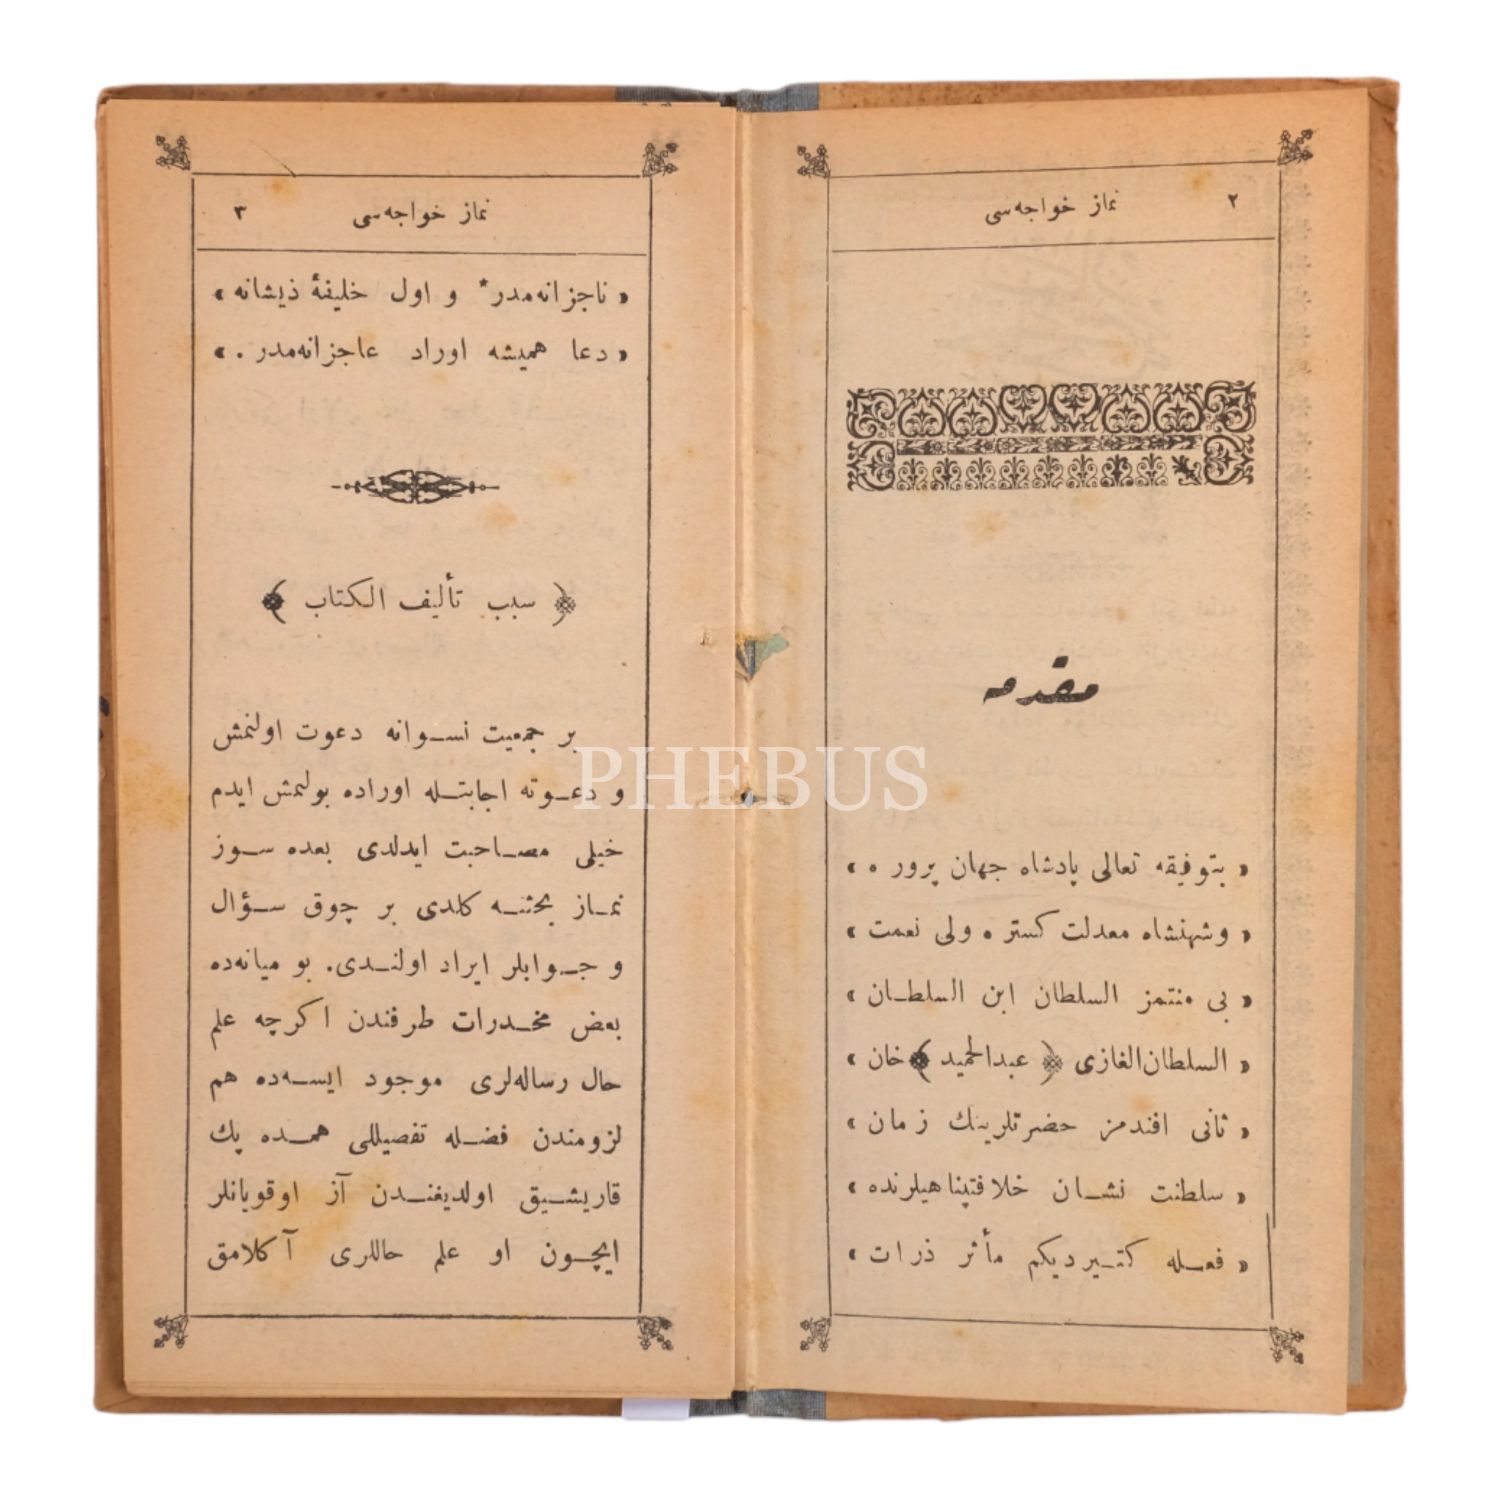 نماز خواجه‌سی ٢
مقدمه
« بتوفیقه تعالی پادشاه جهان پرور ٠ »
« وشهنشاه معدلت کستر ٠ ولی نعمت »
« بی منتمز السلطان ابن السلطان »
« السلطان الغازی ﴿ عبدالحمید ﴾ خان »
« ثانی افندمز حضرتلرینك زمان »
« سلطنت نشان خلافتپناهیلرنده »
« فعله کتیردیکم مأثر ذرات »
نماز خواجه‌سی ٣
« ناچزانه‌مدر * و اول خلیفۀ ذیشانه »
« دعا همیشه اوراد عاجزانه‌مدر . »
﴿ سبب تألیف الکتاب ﴾
بر جمعیت نسوانه دعوت اولنمش
و دعوته اجابتله اوراده بولنمش ایدم
خیلی مصاحبت ایدلدی بعده سوز
نماز بحثنه کلدی بر چوق سؤال
و جوابلر ایراد اولندی. بو میانه‌ده
بعض مخدرات طرفندن اکرچه علم
حال رساله‌لری موجود ایسه‌ده هم
لزومندن فضله تفصیللی همده پك
قاریشیق اولدیغندن آز اوقویانلر
ایچون او علم حاللری آکلامق
PHEBUS